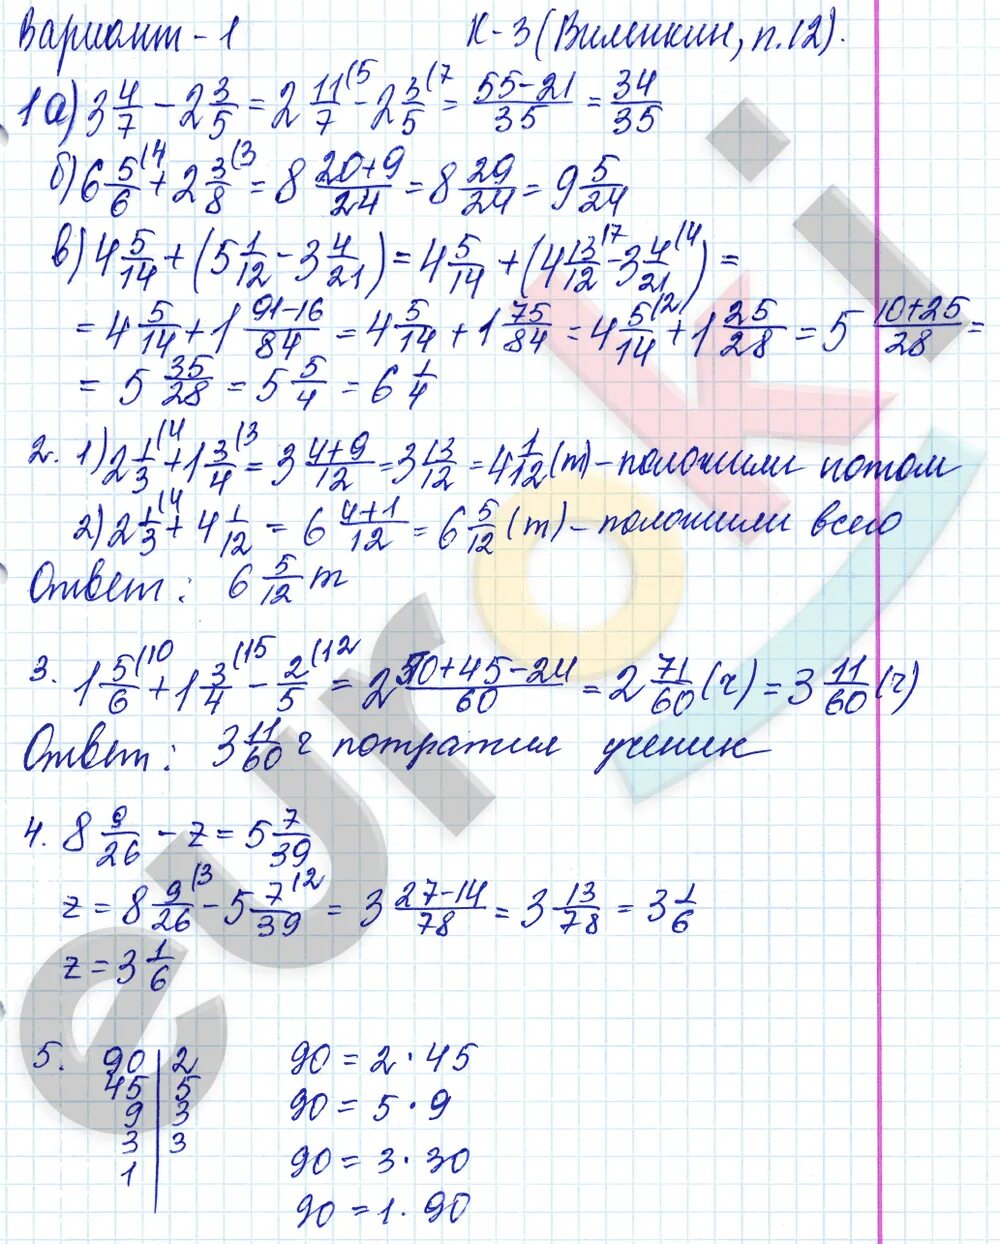 Вариант - 1 К-3 (Виленкин, п.12).
1 а) 3 4/7 - 2 3/5 = 2 11/7 (5 - 2 3/5 (7 = 55-21/35 = 34/35
б) 6 5/6 (4 + 2 3/8 (3 = 8 20+9/24 = 8 29/24 = 9 5/24
в) 4 5/14 + (5 1/12 - 3 4/21) = 4 5/14 + (4 13/12 (7 - 3 4/21 (4) =
= 4 5/14 + 1 91-16/84 = 4 5/14 + 1 75/84 = 4 5/14 (2 + 1 25/28 = 5 10+25/28 =
= 5 35/28 = 5 5/4 = 6 1/4
2. 1) 2 1/3 (4 + 1 3/4 (3 = 3 4+9/12 = 3 13/12 = 4 1/12 (т) - положили потом
2) 2 1/3 (4 + 4 1/12 = 6 4+1/12 = 6 5/12 (т) - положили всего
Ответ: 6 5/12 т
3. 1 5/6 (10 + 1 3/4 (15 - 2/5 (12 = 2 50+45-24/60 = 2 71/60 (ч) = 3 11/60 (ч)
Ответ: 3 11/60 ч потратил ученик
4. 8 9/26 - z = 5 7/39
z = 8 9/26 (3 - 5 7/39 (2 = 3 27-14/78 = 3 13/78 = 3 1/6
z = 3 1/6
5. 90 | 2 90 = 2 · 45
45 | 5 90 = 5 · 9
9 | 3
3 | 3 90 = 3 · 30
1 |
90 = 1 · 90
euroki